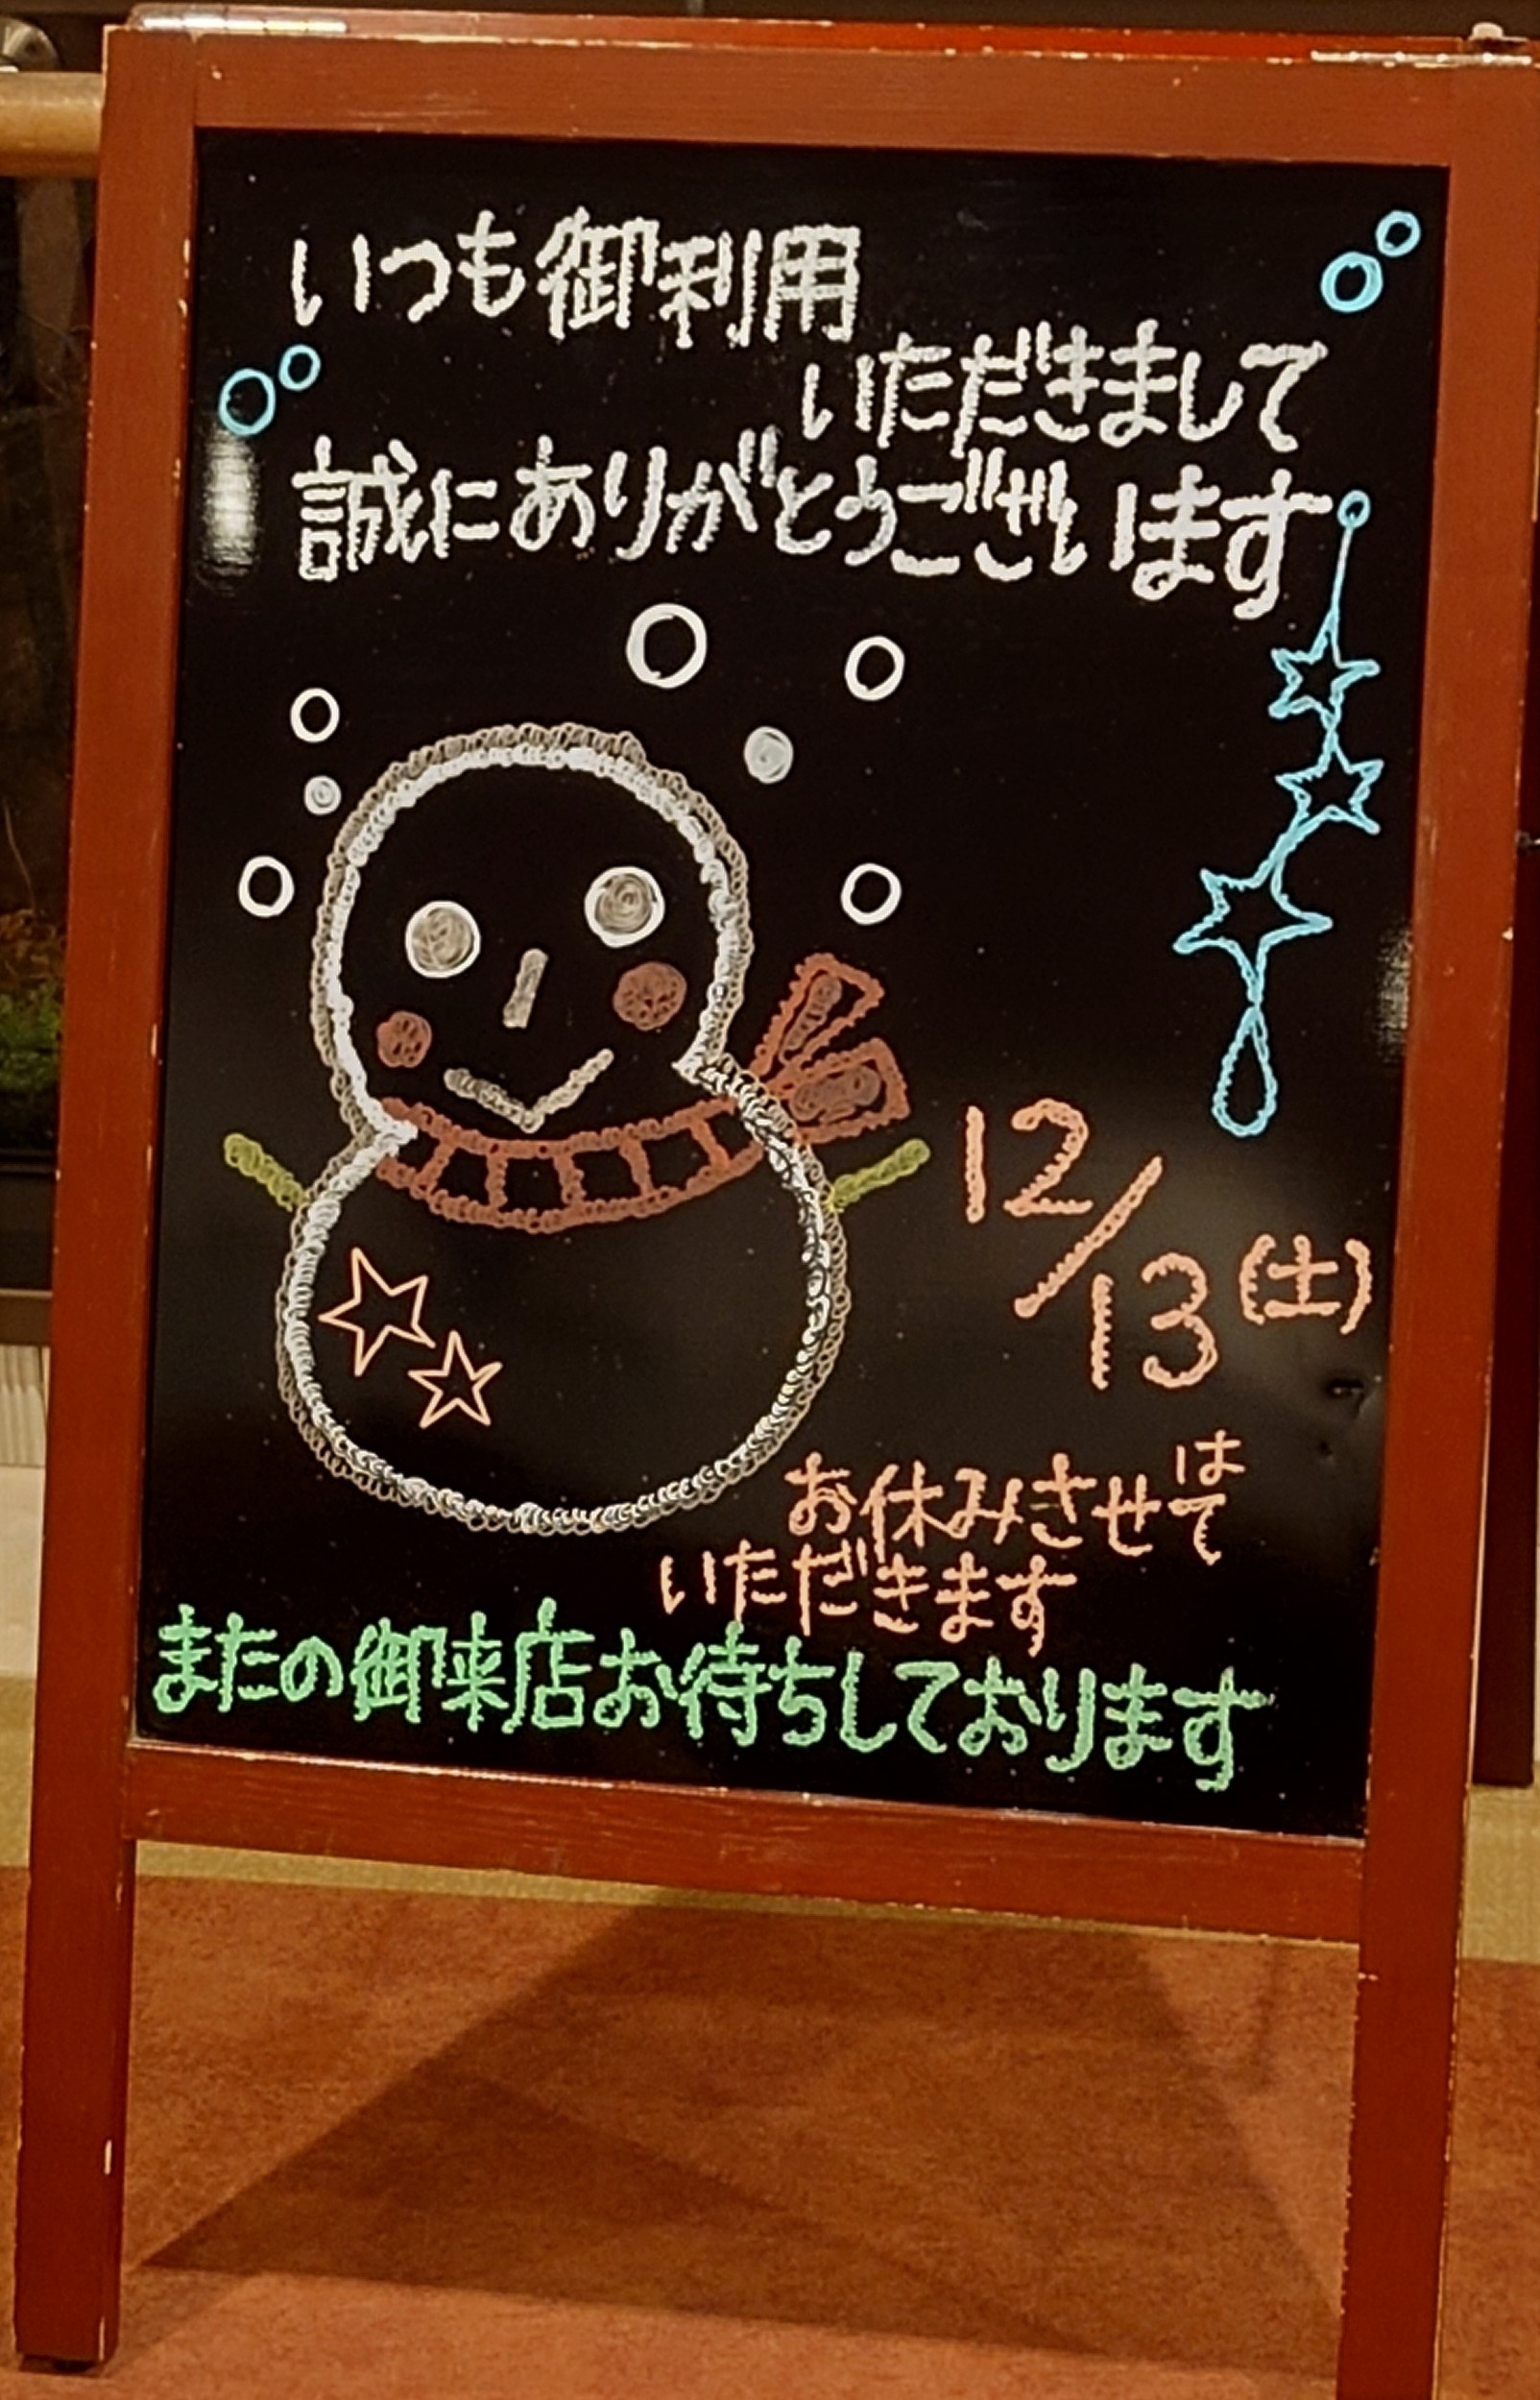 いつも御利用
いただきまして
誠にありがとうございます
12/13(土)
は
お休みさせて
いただきます
またの御来店お待ちしております